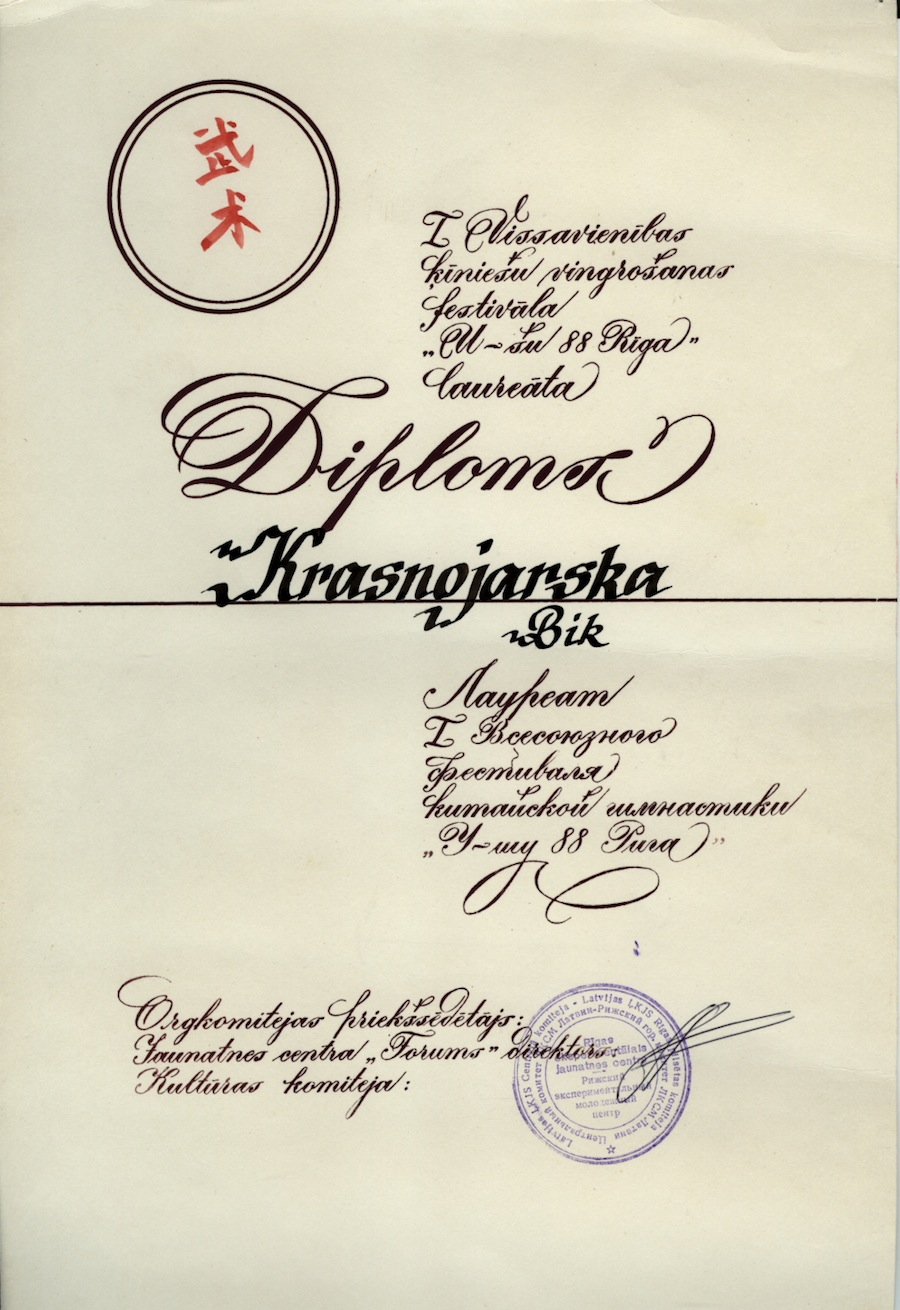 武
术
I Vissavienības
ķīniešu vingrošanas
festivāla
„U-šu 88 Rīga”
laureāta
Diploms
Krasnojarska
Bik
Лауреат
I Всесоюзного
фестиваля
китайской гимнастики
„У-шу 88 Рига”
Orgkomitejas priekšsēdētājs:
Jaunatnes centra „Forums” direktors:
Kultūras komiteja:
Latvijas ĻKJS Rīgas pilsētas komiteja
Latvijas ĻKJS komiteja
Центральный комитет ЛКСМ Латвии
Рижский гор. комитет ЛКСМ Латвии
Rīgas
jaunatnes centrs
Рижский
экспериментальный
молодежный
центр